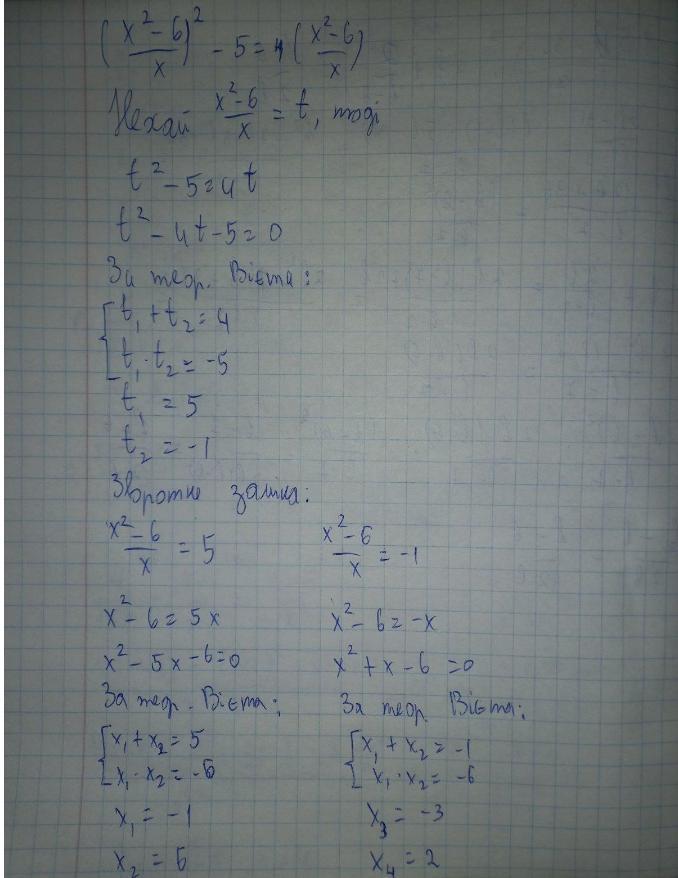 (x²-6/x)² - 5 = 4(x²-6/x)
Нехай x²-6/x = t, тоді
t² - 5 = 4t
t² - 4t - 5 = 0
За теор. Вієта:
t₁ + t₂ = 4
t₁ · t₂ = -5
t₁ = 5
t₂ = -1
Зворотня заміна:
x²-6/x = 5
x² - 6 = 5x
x² - 5x - 6 = 0
За теор. Вієта:
x₁ + x₂ = 5
x₁ · x₂ = -6
x₁ = -1
x₂ = 6
x²-6/x = -1
x² - 6 = -x
x² + x - 6 = 0
За теор. Вієта:
x₁ + x₂ = -1
x₁ · x₂ = -6
x₃ = -3
x₄ = 2